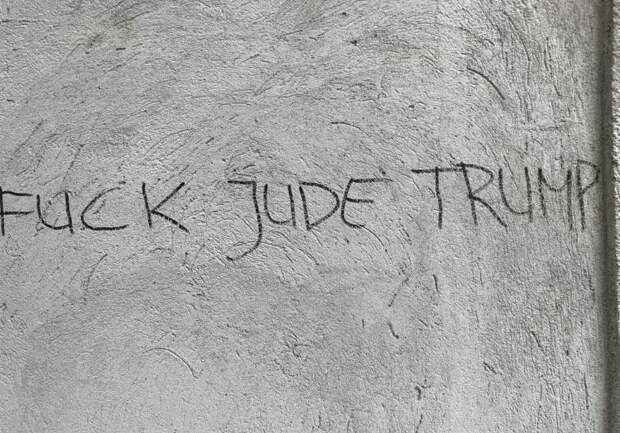 FUCK JUDE TRUMP